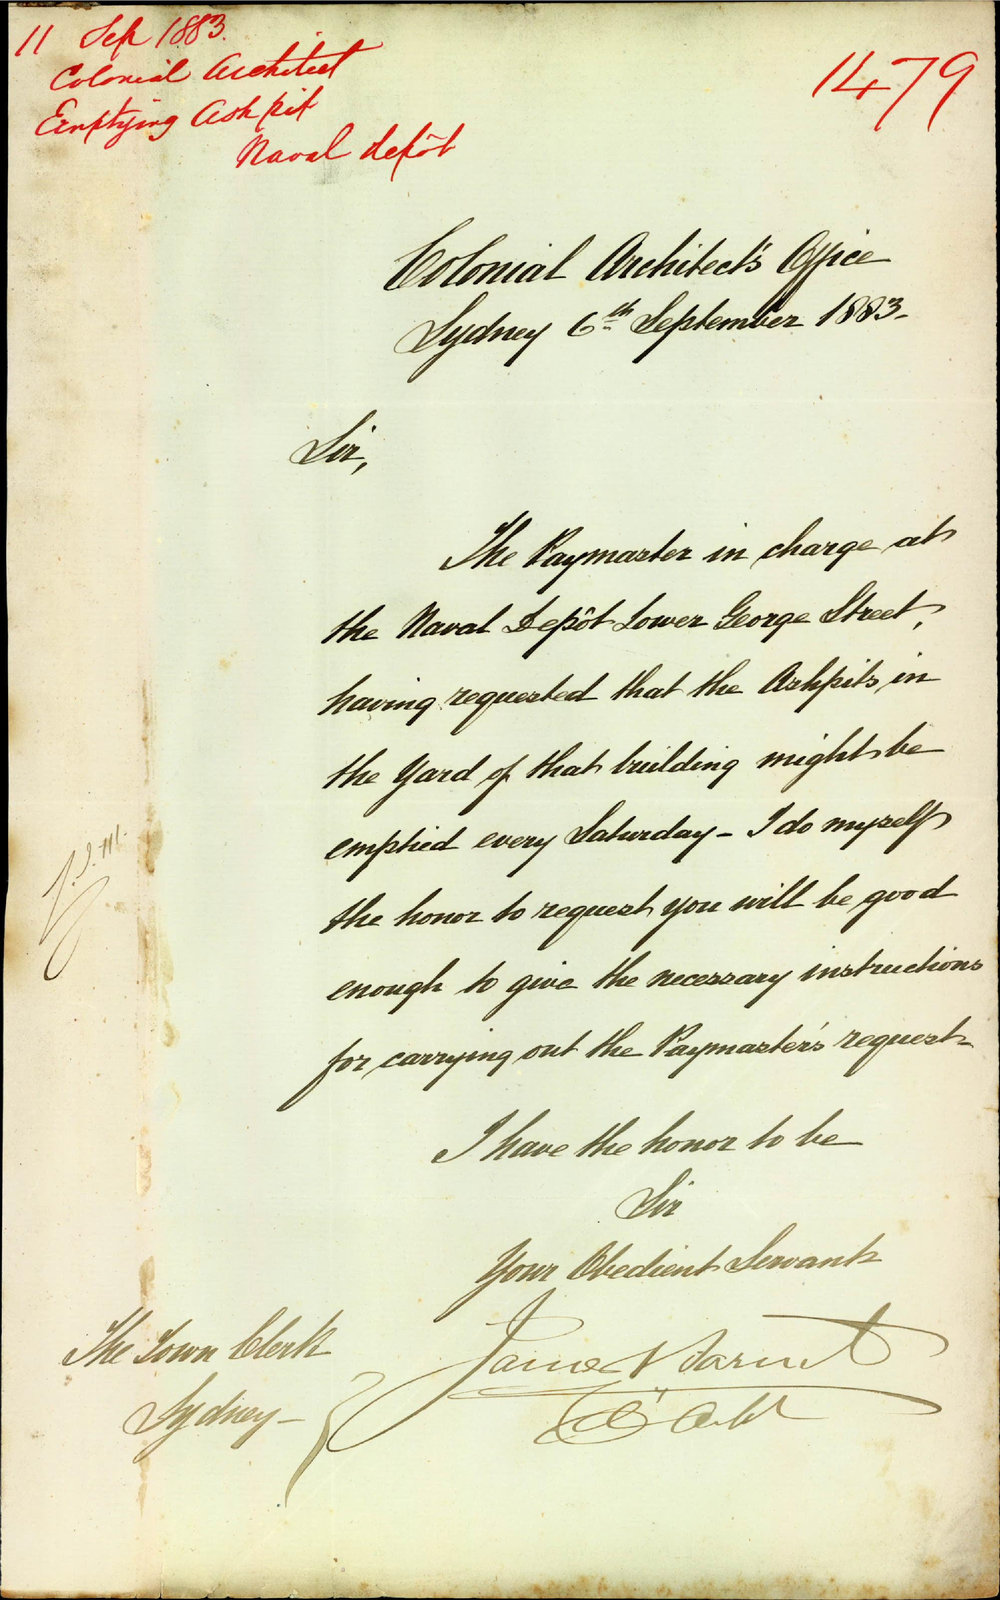 11 Sep 1883.
Colonial Architect
Emptying Ash pit
Naval depôt
1479
Colonial Architect's Office
Sydney 6th September 1883.
Sir,
The Paymaster in charge at
the Naval Depôt Lower George Street,
having requested that the Ashpits in
the Yard of that building might be
emptied every Saturday – I do myself
the honor to request you will be good
enough to give the necessary instructions
for carrying out the Paymaster's request.
I have the honor to be
Sir
Your Obedient Servant
James Barnet
Col Archt
The Town Clerk
Sydney –